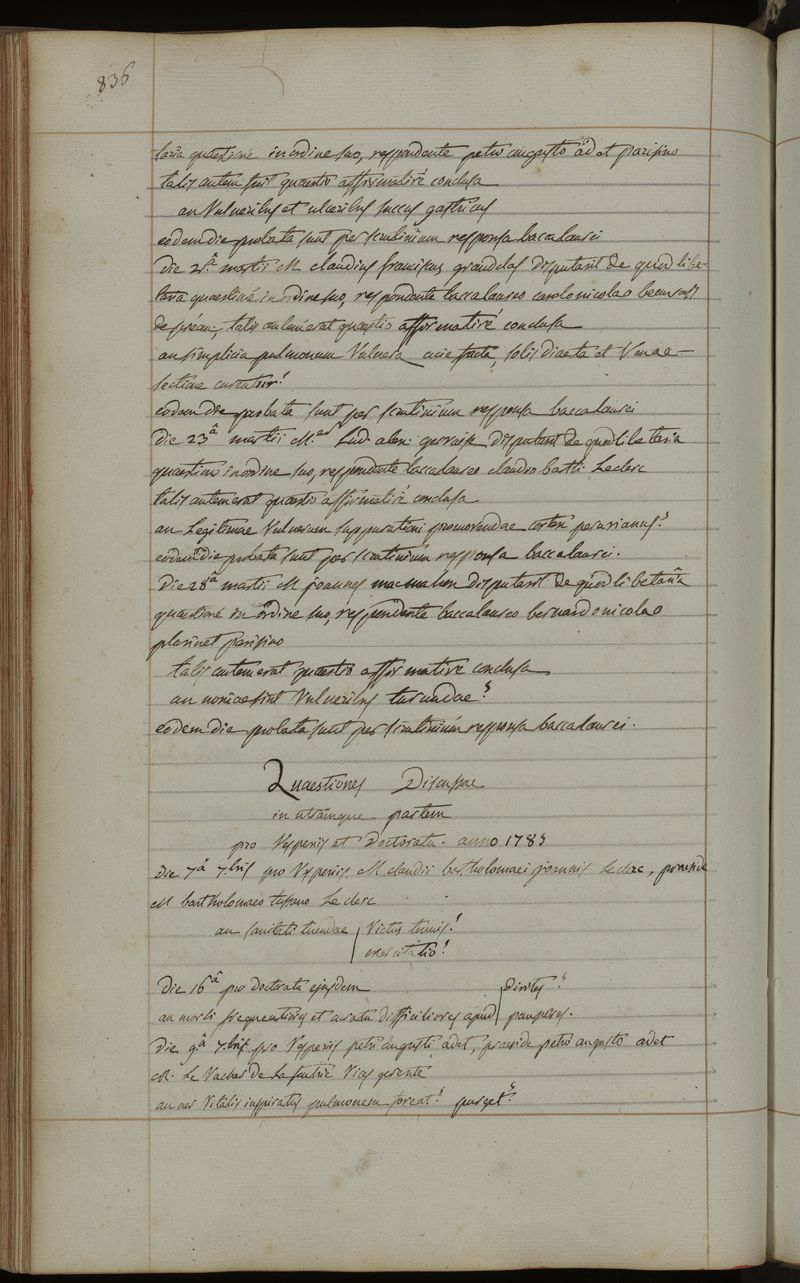 836
taria quaestione in ordine suo, respondente petro augusto adet parisino
talis autem fuit quaestio affirmative conclusa
an Vulneribus et ulceribus succus gastricus
eodem die probata sunt per scrutinium responsa baccalaurei
Die 21.ª martii M claudius franciscus grandclas disputavit de quod libe-
taria quaestione in ordine suo, respondente baccalaureo carolo nicolao
talis autem erat quaestio affirmativè conclusa
an simplicia pulmonum Vulnera acie facta, solis diaeta et Venae
sectione curantur?
eodem die probata sunt per scrutinium responsa baccalaurei
Die 23ª martii M.er Lud. alex. gervaise disputavit de quodlibetaria
quaestione in ordine suo, respondente baccalaureo claudio barth. Leclerc
talis autem erat quaestio affirmativè conclusa
an Legitimae Vulnerum suppurationi promovendae cortex peruvianus?
eodem die probata sunt per scrutinium responsa baccalaurei.
Die 28ª martii M joannes macmahon disputavit de quodlibetaria
quaestione in ordine suo, respondente baccalaureo bernardo nicolao
parisino
talis autem erat quaestio affirmative conclusa
an noxiae sint Vulneribus turundae?
eodem die probata sunt per scrutinium responsa baccalaurei.
Quaestiones Discussae
in utramque partem
pro Vesperiis et Doctoratu. anno 1785
Die 7ª 7.bris pro Vesperiis M claudii bartholomaei joannis Leclerc, praeside
M bartholomaeo tusano Leclerc
an sanitati tuendae Victus tenuis?
exercitatio?
Die 16ª pro doctoratu ejusdem
divites?
an morbi frequentiores et curatu difficiliores apud pauperes.
Die 9.ª 7.bris pro Vesperiis petri augusti adet, praeside petro augusto adet
M. Le Vacher De La feutrie Vices gerente
an aer Vitalis inspiratus pulmonem foveat? purget?